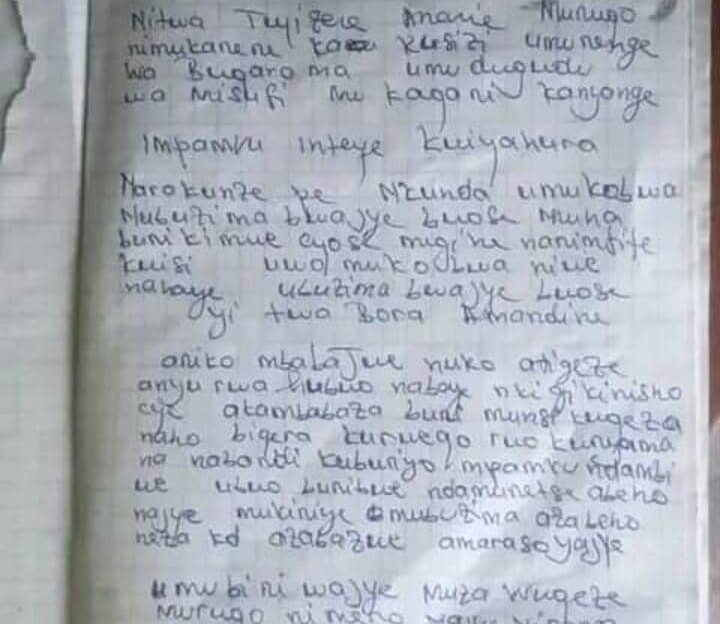 Nitwa Tuyizere Ananie Murugo
nimukanene kusizi umurenge
wa Bugarama umudugudu
wa Misufi mukagari kanyonge
Impamvu inteye kwiyahura
Narakunze pe Nkunda umukobwa
Mubuzima bwajye bwose Muha
buri kimwe cyose migihe nanimfite
kwisi uwo mukobwa niwe
nahaye ubuzima bwajye bwose
yitwa Bora Amandine
ariko mbabajwe nuko atigeze
anyurwa nabaye nkigikinisho
cye atambabaza buri munsi kugeza
naho bigera kurwego rwo kuryama
na nabandi kuburiyo impamvu ndambi
we ubuo bunibwe ndamuretse abeho
najye mukiniye mubuzima azabeho
neza kd azabazwe amarasoyajye
umubiri wajye Muza wugeze
Murugo